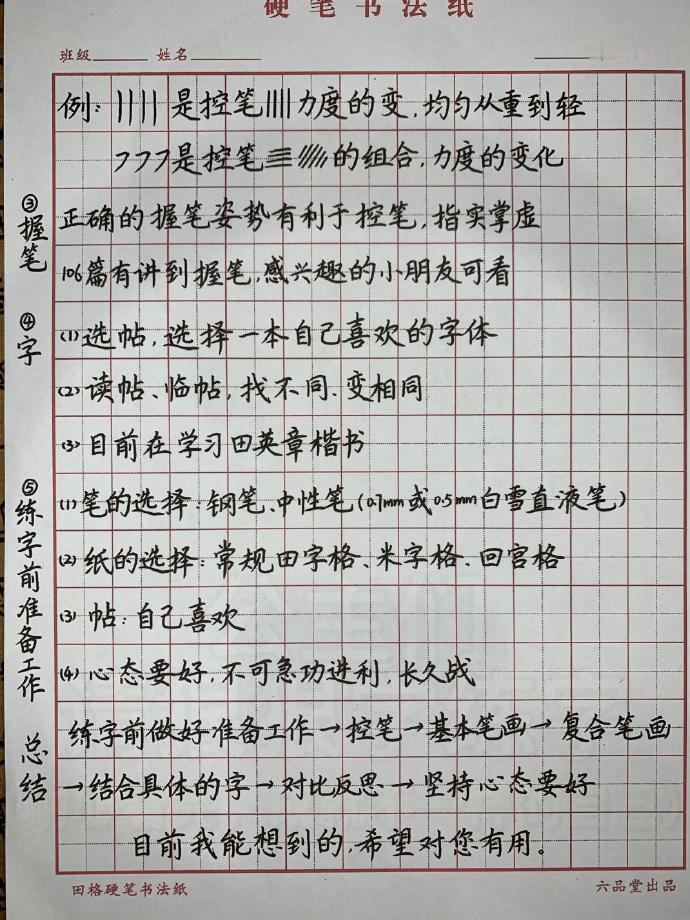 硬笔书法纸
班级 姓名
例: 是控笔 力度的变,均匀从重到轻
是控笔 的组合,力度的变化
③握笔
正确的握笔姿势有利于控笔,指实掌虚
106篇有讲到握笔,感兴趣的小朋友可看
④字
(1)选帖,选择一本自己喜欢的字体
(2)读帖、临帖,找不同、变相同
(3)目前在学习田英章楷书
⑤练字前准备工作
(1)笔的选择:钢笔、中性笔(0.7mm或0.5mm白雪直液笔)
(2)纸的选择:常规田字格、米字格、回宫格
(3)帖:自己喜欢
(4)心态要好,不可急功进利,长久战
总结
练字前做好准备工作→控笔→基本笔画→复合笔画
→结合具体的字→对比反思→坚持心态要好
目前我能想到的,希望对您有用。
田格硬笔书法纸 六品堂出品